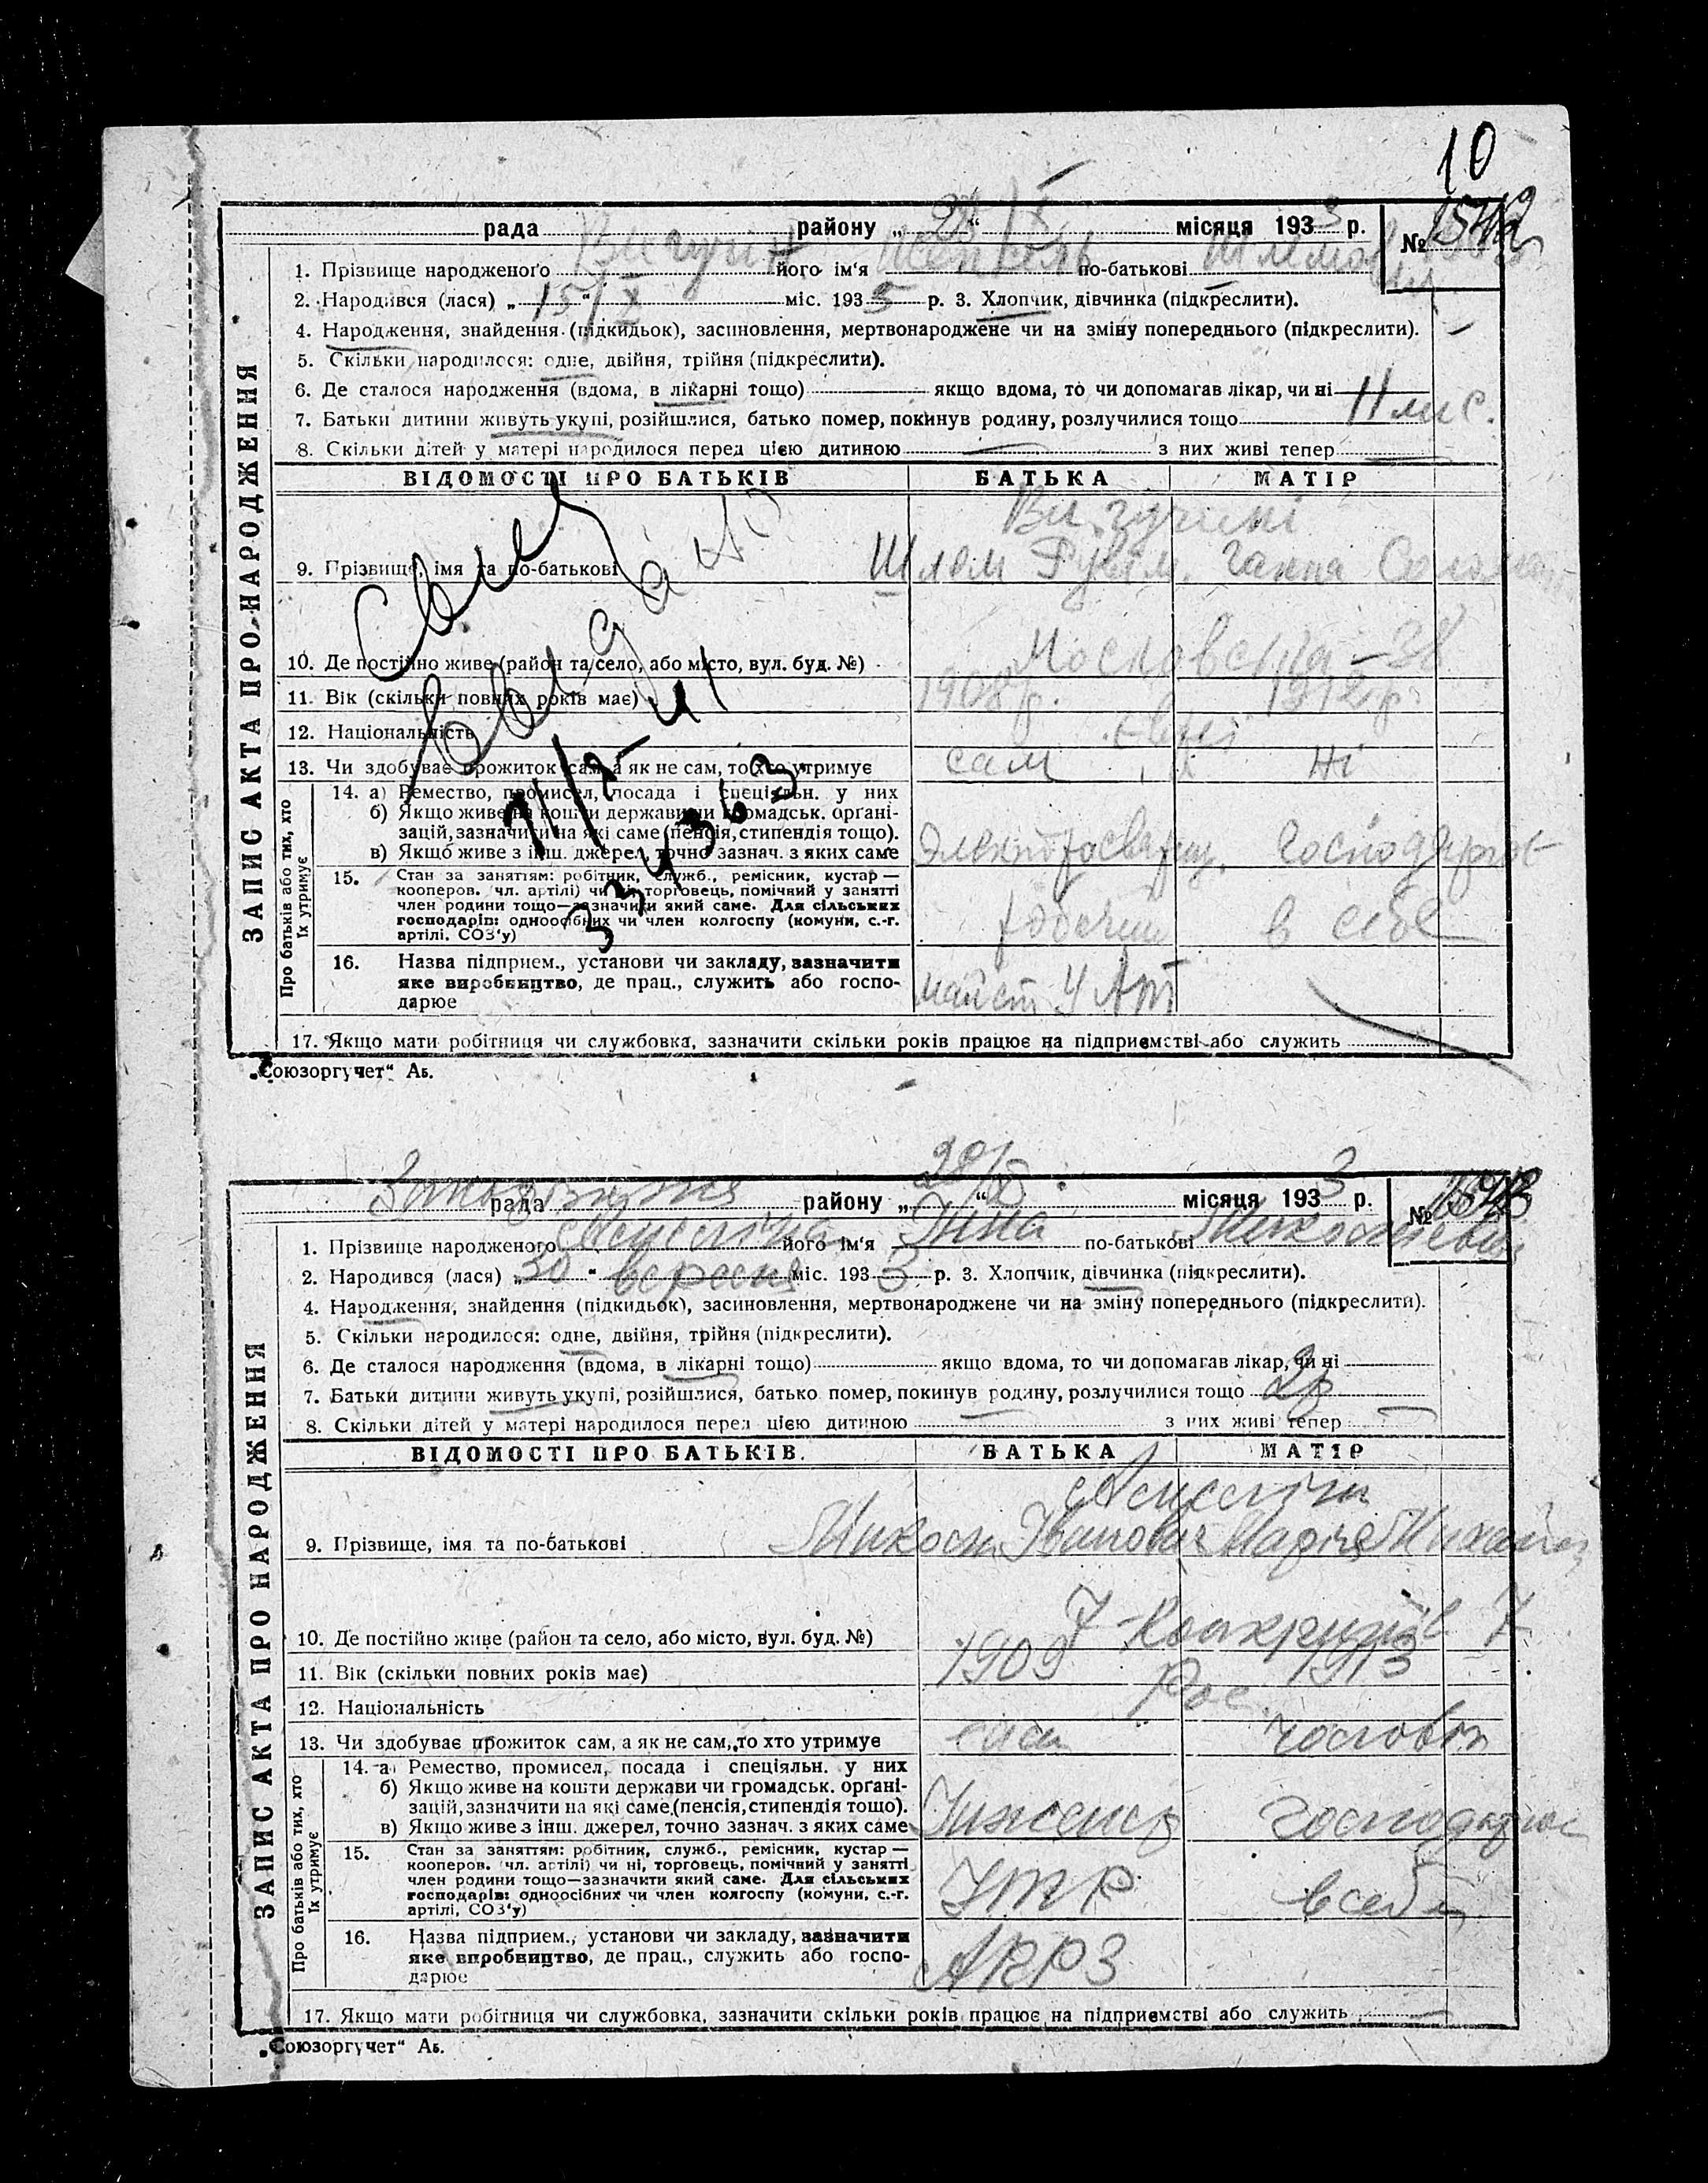 10
рада району „28“ X місяця 1933 р. № 1542
1. Прізвище народженого Вигучін його ім‘я по-батькові
2. Народився (лася) „15/X“ міс. 193 р. 3. Хлопчик, дівчинка (підкреслити).
4. Народження, знайдення (підкидьок), засиновлення, мертвонароджене чи на зміну попереднього (підкреслити).
5. Скільки народилося: одне, двійня, трійня (підкреслити).
6. Де сталося народження (вдома, в лікарні тощо) якщо вдома, то чи допомагав лікар, чи ні
7. Батьки дитини живуть укупі, розійшлися, батько помер, покинув родину, розлучилися тощо
8. Скільки дітей у матері народилося перед цією дитиною з них живі тепер
ЗАПИС АКТА ПРО НАРОДЖЕННЯ
ВІДОМОСТІ ПРО БАТЬКІВ БАТЬКА МАТІР
9. Прізвище, імя та по-батькові Шлем Рувим. Ганна
10. Де постійно живе (район та село, або місто, вул. буд. №) Московська – 38
11. Вік (скільки повних років має) 1908 р. 1912 р.
12. Національність євреї
13. Чи здобуває прожиток сам, а як не сам, то хто утримує сам ні
Про батьків або тих, хто їх утримує
14. а) Ремество, промисел, посада і спеціяльн. у них
б) Якщо живе на кошти держави чи громадськ. орґані-
зацій, зазначити на які саме (пенсія, стипендія тощо).
в) Якщо живе з інш. джерел, точно зазнач. з яких саме Электросварщ.
15. Стан за заняттям: робітник, служб., ремісник, кустар —
кооперов. (чл. артілі) чи ні, торговець, помічний у занятті
член родини тощо—зазначити який саме. Для сільських
господарів: одноосібних чи член колгоспу (комуни, с.-г.
артілі, СОЗ‘у) в себе
16. Назва підприєм., установи чи закладу, зазначити
яке виробництво, де прац., служить або госпо-
дарює
17. Якщо мати робітниця чи службовка, зазначити скільки років працює на підприємстві або служить
„Союзоргучет“ Аб.
Свид
выдан
7/X-41
334363
рада району „28/X“ місяця 1933 р. № 1543
1. Прізвище народженого його ім‘я Інна по-батькові Миколаївна
2. Народився (лася) „30“ вересня міс. 1933 р. 3. Хлопчик, дівчинка (підкреслити).
4. Народження, знайдення (підкидьок), засиновлення, мертвонароджене чи на зміну попереднього (підкреслити).
5. Скільки народилося: одне, двійня, трійня (підкреслити).
6. Де сталося народження (вдома, в лікарні тощо) якщо вдома, то чи допомагав лікар, чи ні
7. Батьки дитини живуть укупі, розійшлися, батько помер, покинув родину, розлучилися тощо 2р
8. Скільки дітей у матері народилося перед цією дитиною з них живі тепер
ЗАПИС АКТА ПРО НАРОДЖЕННЯ
ВІДОМОСТІ ПРО БАТЬКІВ. БАТЬКА МАТІР
9. Прізвище, імя та по-батькові Микола Іванович Марія
10. Де постійно живе (район та село, або місто, вул. буд. №)
11. Вік (скільки повних років має) 1909 1913
12. Національність Рос.
13. Чи здобуває прожиток сам, а як не сам, то хто утримує сам чоловік
Про батьків або тих, хто їх утримує
14. а) Ремество, промисел, посада і спеціяльн. у них
б) Якщо живе на кошти держави чи громадськ. орґані-
зацій, зазначити на які саме (пенсія, стипендія тощо).
в) Якщо живе з інш. джерел, точно зазнач. з яких саме Інженер
15. Стан за заняттям: робітник, служб., ремісник, кустар —
кооперов. (чл. артілі) чи ні, торговець, помічний у занятті
член родини тощо—зазначити який саме. Для сільських
господарів: одноосібних чи член колгоспу (комуни, с.-г.
артілі, СОЗ‘у) ІТР в себе
16. Назва підприєм., установи чи закладу, зазначити
яке виробництво, де прац., служить або госпо-
дарює АРРЗ
17. Якщо мати робітниця чи службовка, зазначити скільки років працює на підприємстві або служить
„Союзоргучет“ Аб.